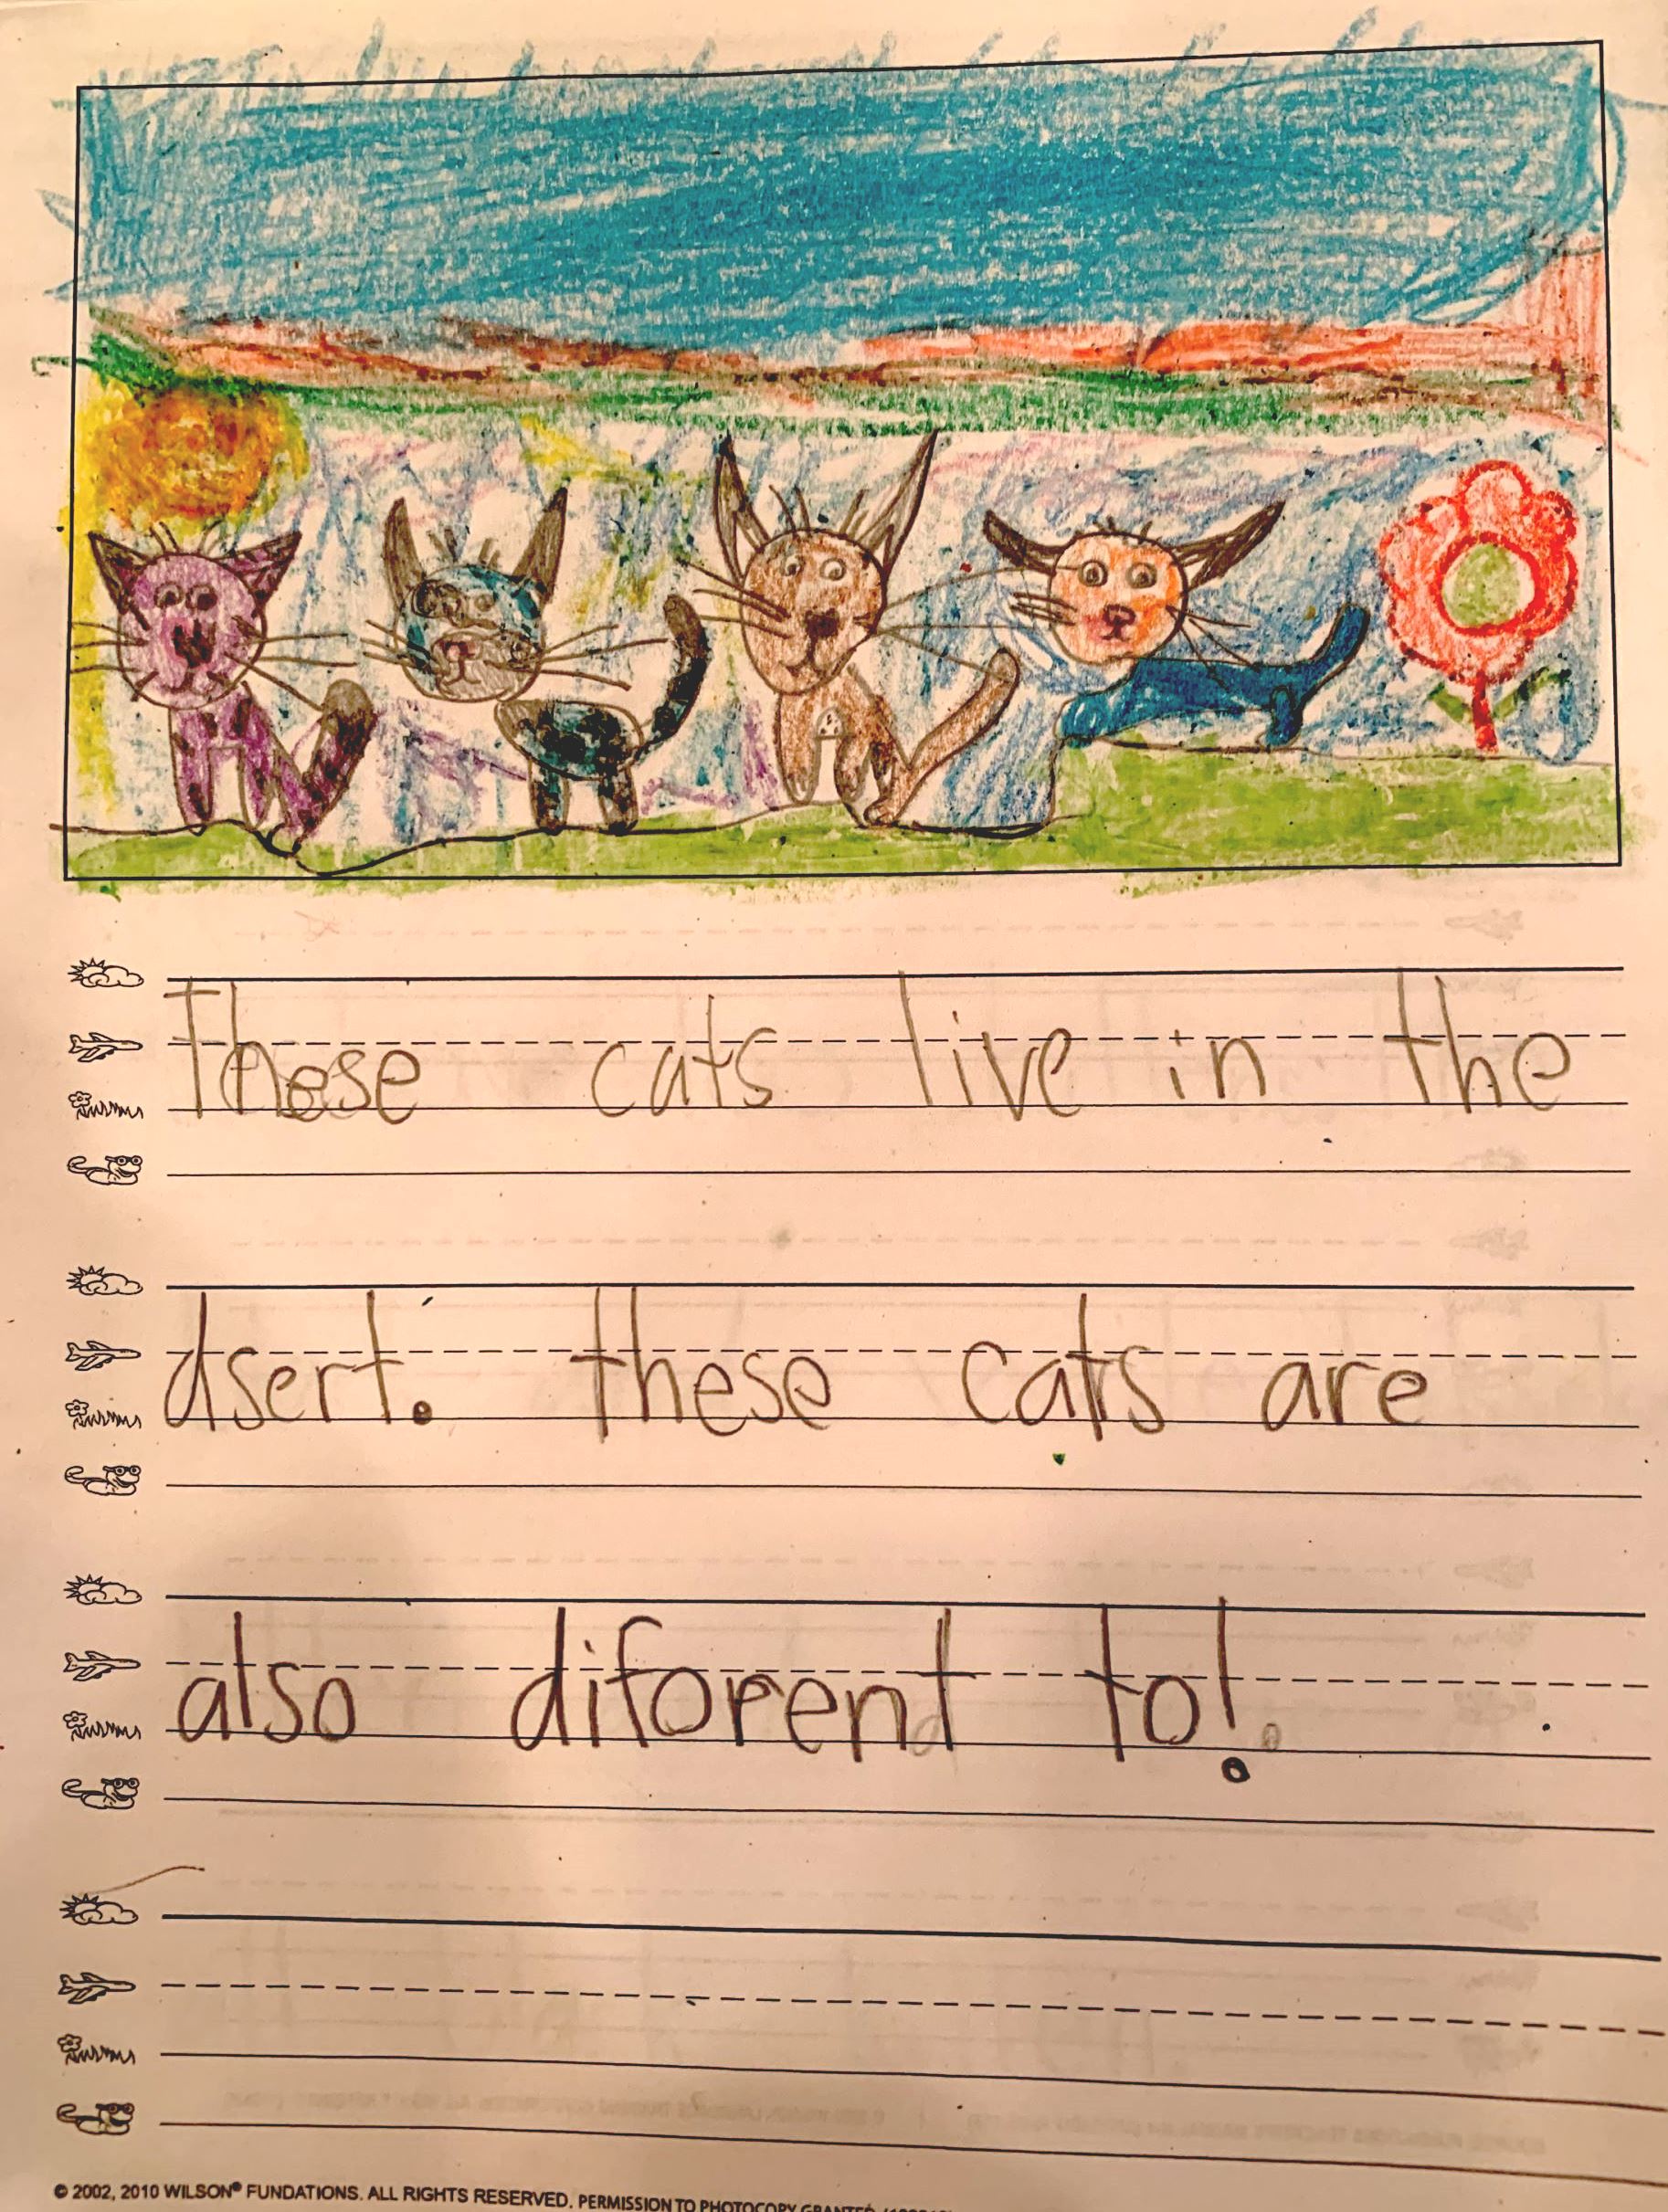 These cats live in the
dsert. these cats are
also diforent to!
© 2002, 2010 WILSON® FUNDATIONS. ALL RIGHTS RESERVED. PERMISSION TO PHOTOCOPY GRANTED.